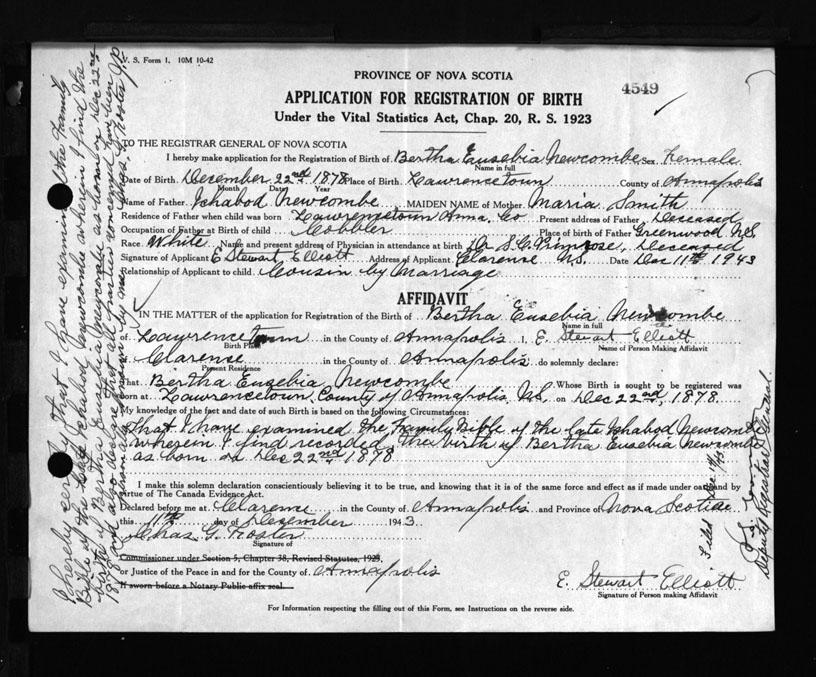 V. S. Form 1. 10M 10-42
PROVINCE OF NOVA SCOTIA
4549
APPLICATION FOR REGISTRATION OF BIRTH
Under the Vital Statistics Act, Chap. 20, R. S. 1923
TO THE REGISTRAR GENERAL OF NOVA SCOTIA
I hereby make application for the Registration of Birth of Bertha Eusebia Newcombe Sex Female
Name in full
Date of Birth December 22nd 1878 Place of Birth Lawrencetown County of Annapolis
Month Date Year
Name of Father Ichabod Newcombe MAIDEN NAME of Mother Maria Smith
Residence of Father when child was born Lawrencetown Anna. Co Present address of Father Deceased
Occupation of Father at Birth of child Cobbler Place of birth of Father Greenwood N.S.
Race White Name and present address of Physician in attendance at birth Dr S. C. Primrose, Deceased
Signature of Applicant E Stewart Elliott Address of Applicant Clarence N.S. Date Dec 11th 1943
Relationship of Applicant to child Cousin by Marriage
AFFIDAVIT
IN THE MATTER of the application for Registration of the Birth of Bertha Eusebia Newcombe
Name in full
of Lawrencetown in the County of Annapolis I, E. Stewart Elliott
Birth Place Name of Person Making Affidavit
of Clarence in the County of Annapolis do solemnly declare:
Present Residence
That Bertha Eusebia Newcombe Whose Birth is sought to be registered was
born at Lawrencetown, County of Annapolis, N.S. on Dec 22nd, 1878
My knowledge of the fact and date of such Birth is based on the following Circumstances:
That I have examined the Family Bible of the late Ichabod Newcombe
wherein I find recorded the birth of Bertha Eusebia Newcombe
as born on Dec 22nd 1878
I make this solemn declaration conscientiously believing it to be true, and knowing that it is of the same force and effect as if made under oath and by
virtue of The Canada Evidence Act.
Declared before me at Clarence in the County of Annapolis and Province of Nova Scotia
this 11th day of December 1943
Chas. G. Foster
Signature of
Commissioner under Section 5, Chapter 38, Revised Statutes, 1923,
or Justice of the Peace in and for the County of Annapolis
If sworn before a Notary Public affix seal.
E. Stewart Elliott
Signature of Person making Affidavit
For Information respecting the filling out of this Form, see Instructions on the reverse side.
I hereby certify that I have examined the Family
Bible of the late Ichabod Newcombe wherein I find the
birth of Bertha Eusebia Newcombe as born on Dec 22nd
1878 and also declare that all parties concerned have been
personally known by me Chas. G. Foster J.P.
Filed Dec
Deputy Registrar General